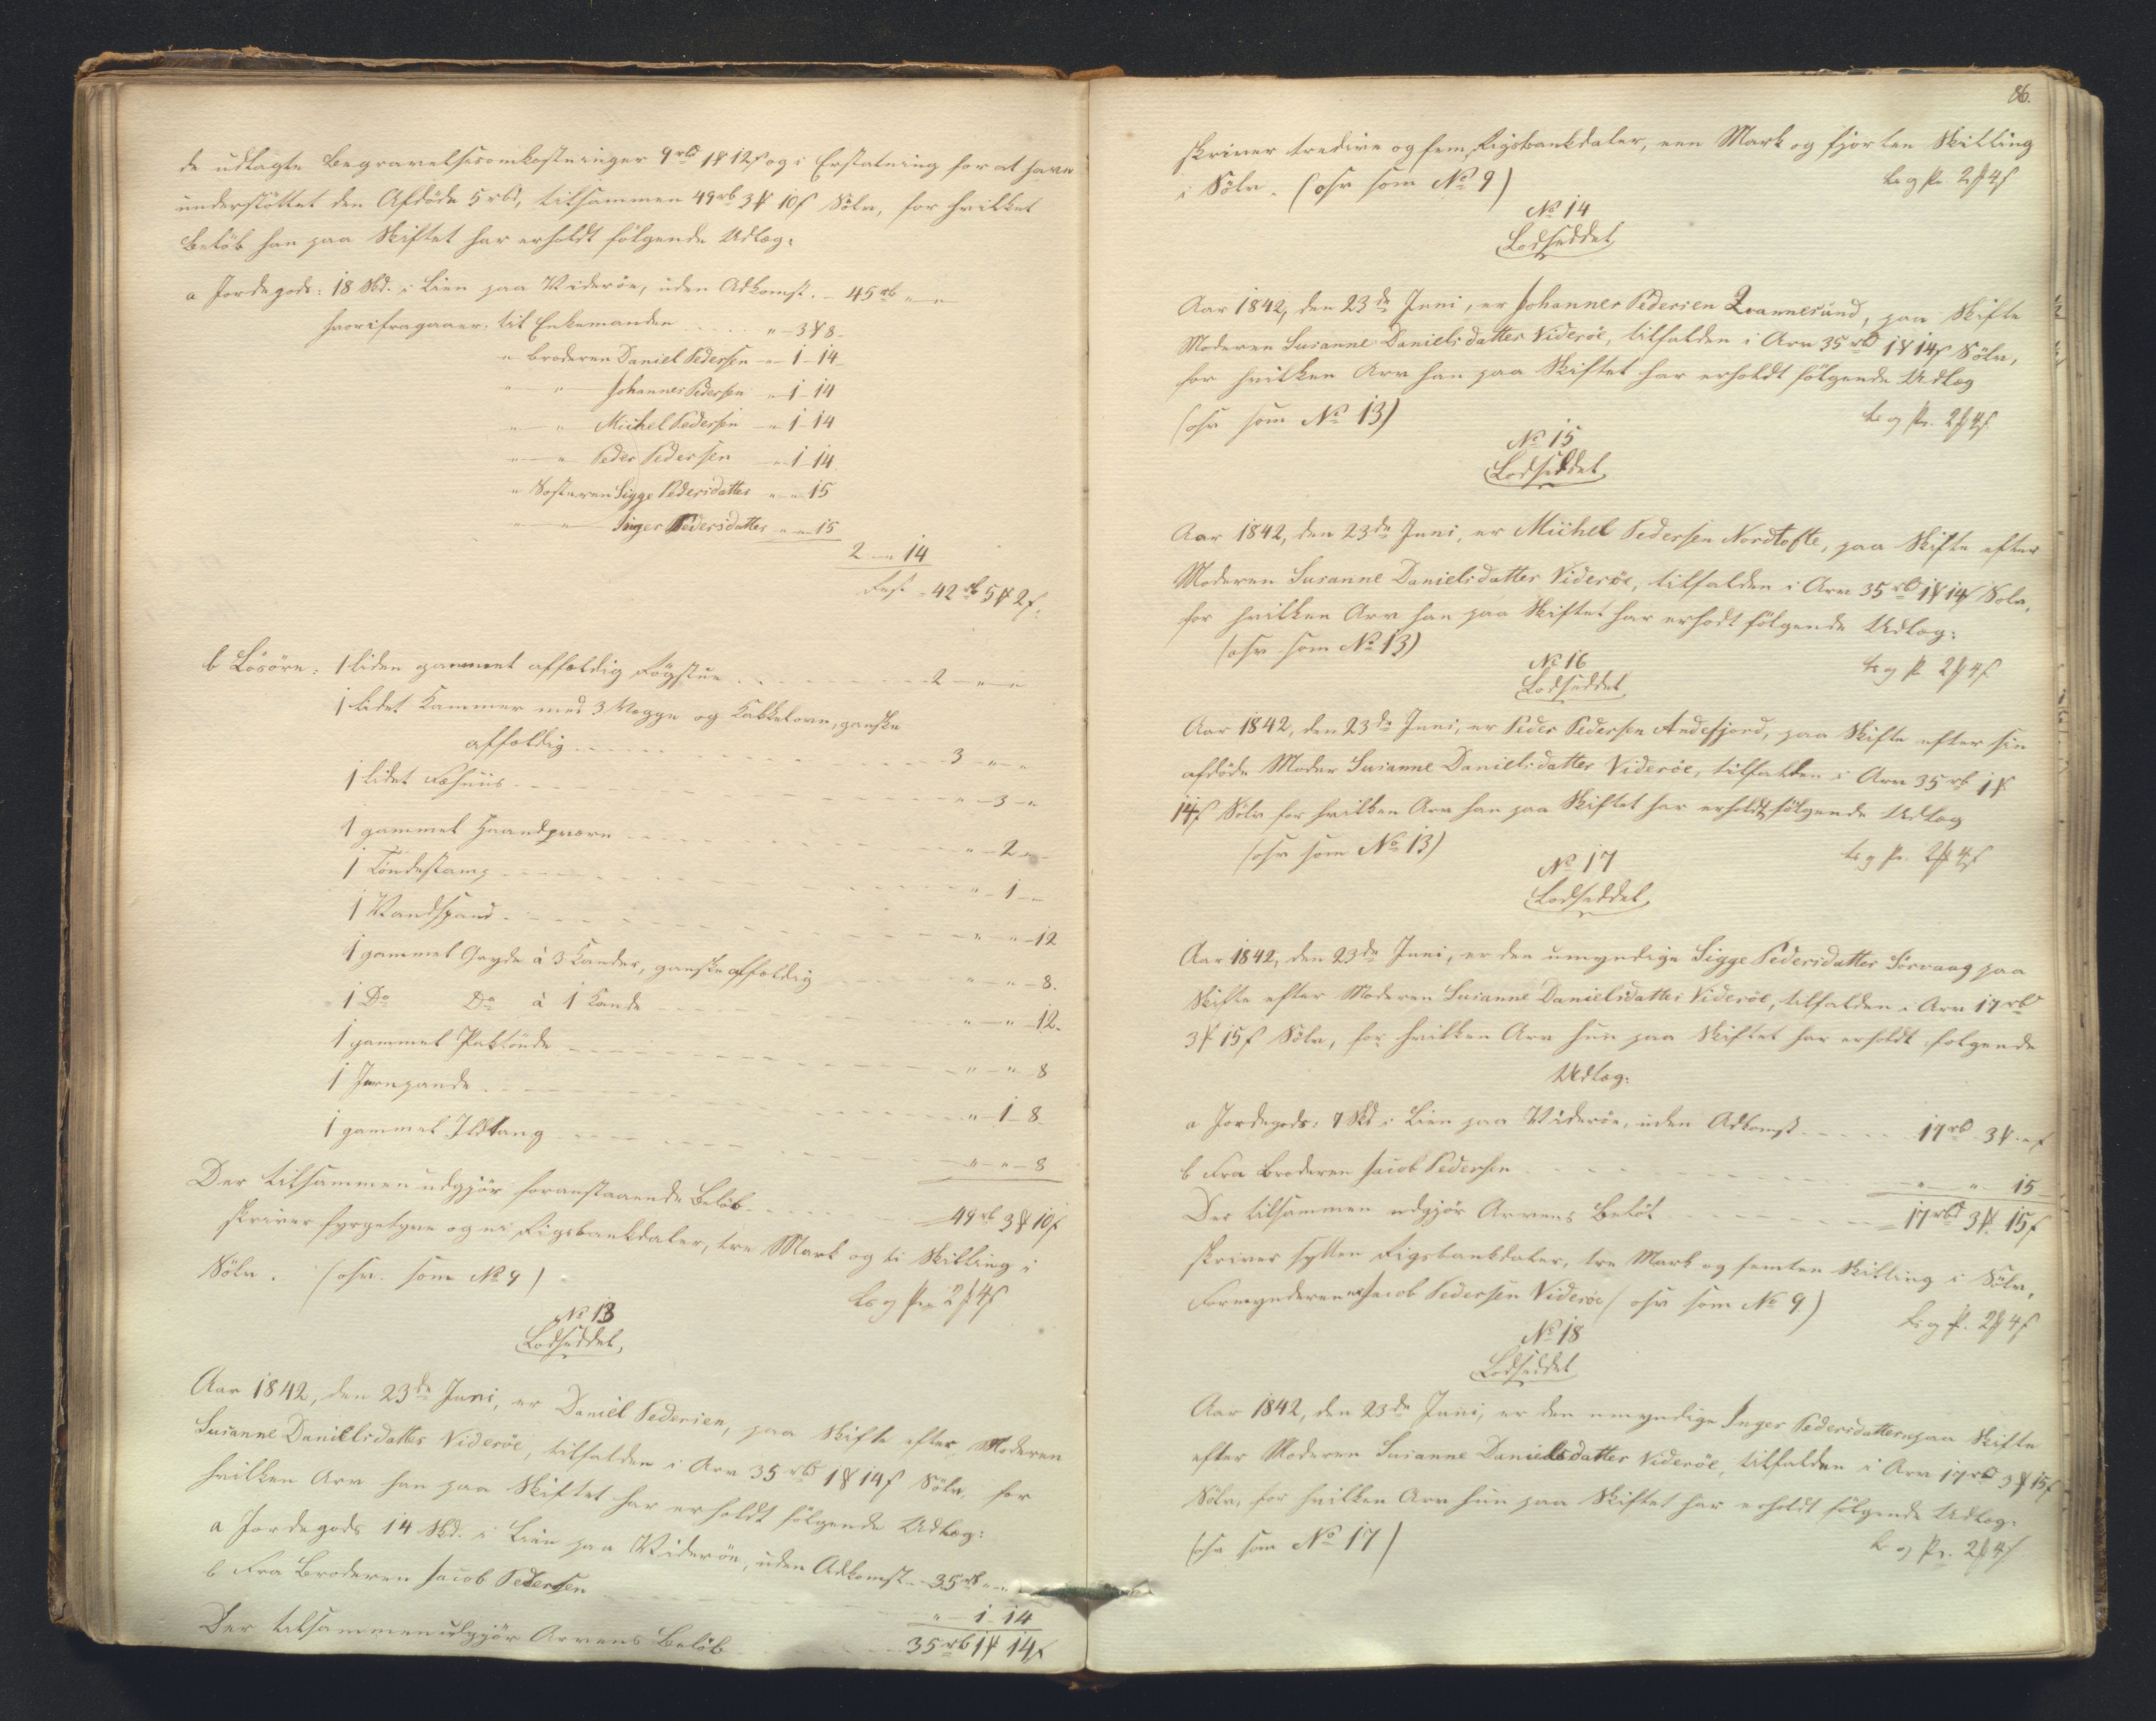 de udlagte Begravelsesomkostninger 9rbd 1 ₻ 12 ß og i Erstatning for at have
understöttet den Afdöde 5 rbd, tilsammen 49 rb 3 ₻ 10 ß Sölv, for hvilket
Belöb han paa Skiftet har erholdt fölgende Udlæg:
a Jordegods: 18 Skd. i Lien paa Videröe, uden Adkomst. - 45 rb " — "
hvorifragaaer: til Enkemanden . . . . " — 3 ₻ 8
" Broderen Daniel Pedersen — " 1 — 14
" — " Johannes Pedersen " — 1 — 14
" — " Michel Pedersen — " 1 — 14
" — " Peder Pedersen — " 1 — 14
" Söstren Sigge Pedersdatter " — " 15
" — " Inger Pedersdatter " — " 15
2 — " 14
Rest - 42 rb 5 ₻ 2 ß.
b Lösöre: 1 liden gammel affældig Rögstue . . . . 2 — " — "
1 lidet Kammer med 3 Vægge og Kakkelovn, ganske
affældig . . . . 3 — " — "
1 lidet Fæhuus . . . . " — 3 — "
1 gammel Haandqværn . . . . " — 2 — "
1 Töndestamp . . . . " — 1 — "
1 Vandspand . . . . " — " — 12
1 gammel Gryde à 3 Kander, ganske affældig . . . . " — " — 8.
1 Do Do à 1 Kande . . . . " — " — 12.
1 gammel Paktönde . . . . " — " — 8
1 Jernpande . . . . " — 1 — 8
1 gammel Ildtang . . . . " — " — 8
Der tilsammen udgjör foranstaaende Belöb . . . . 49 rb 3 ₻ 10 ß
skriver fyrgetyve og ni Rigsbankdaler, tre Mark og ti Skilling i
Sölv. (osv. som No 9)
Ls og Pr 2 ₻ 4 ß
No 13
Lodseddel,
Aar 1842, den 23de Juni, er Daniel Pedersen, paa Skifte efter Moderen
Susanne Danielsdatter Videröe, tilfalden i Arv 35 rbd 1 ₻ 14 ß Sölv, for
hvilken Arv han paa Skiftet har erholdt fölgende Udlæg:
a Jordegods 14 Skd. i Lien paa Videröe, uden Adkomst - 35 rb " — "
b Fra Broderen Jacob Pedersen . . . . " — 1 — 14
Der tilsammen udgjör Arvens Belöb . . . . 35 rb 1 ₻ 14 ß
86.
skriver tredive og fem Rigsbankdaler, een Mark og fjorten Skilling
i Sölv. (osv som No 9)
Ls og Pr. 2 ₻ 4 ß
No 14
Lodseddel
Aar 1842, den 23de Juni, er Johannes Pedersen Qvannesund, paa Skifte
Moderen Susanne Danielsdatter Videröe, tilfalden i Arv 35 rbd 1 ₻ 14 ß Sölv,
for hvilken Arv han paa Skiftet har erholdt fölgende Udlæg
(osv som No 13)
Ls og Pr. 2 ₻ 4 ß
No 15
Lodseddel,
Aar 1842, den 23de Juni, er Michel Pedersen Nordtofte, paa Skifte efter
Moderen Susanne Danielsdatter Videröe, tilfalden i Arv 35 rbd 1 ₻ 14 ß Sölv,
for hvilken Arv han paa Skiftet har erhodt fölgende Udlæg:
(osv som No 13)
Ls og Pr 2 ₻ 4 ß
No 16
Lodseddel
Aar 1842, den 23de Juni, er Peder Pedersen Andefjord, paa Skifte efter sin
afdöde Moder Susanne Danielsdatter Videröe, tilfalden i Arv 35 rb 1 ₻
14 ß Sölv for hvilken Arv han paa Skiftet har erholdt fölgende Udlæg
(osv som No 13)
Ls og Pr. 2 ₻ 4 ß
No 17
Lodseddel,
Aar 1842, den 23de Juni, er den umyndige Sigge Pedersdatter Sörvaag paa
Skifte efter Moderen Susanne Danielsdatter Videröe, tilfalden i Arv 17 rbd
3 ₻ 15 ß Sölv, for hvilken Arv hun paa Skiftet har erholdt fölgende
Udlæg:
a Jordegods, 7 Skd i Lien paa Videröe, uden Adkomst . . . . 17 rbd 3 ₻ " ß
b Fra Broderen Jacob Pedersen . . . . " — " — 15
Der tilsammen udgjör Arvens Belöb . . . . 17 rbd 3 ₻ 15 ß
skriver sytten Rigsbankdaler, tre Mark og femten Skilling i Sölv,
Formynderen er Jacob Pedersen Videröe (osv som No 9)
Ls og Pr. 2 ₻ 4 ß
No 18
Lodseddel
Aar 1842, den 23de Juni, er den umyndige Inger Pedersdatter, paa Skifte
efter Moderen Susanne Danielsdatter Videröe, tilfalden i Arv 17 rbd 3 ₻ 15 ß
Sölv, for hvilken Arv hun paa Skiftet har erholdt fölgende Udlæg:
(osv som No 17)
Ls og Pr. 2 ₻ 4 ß